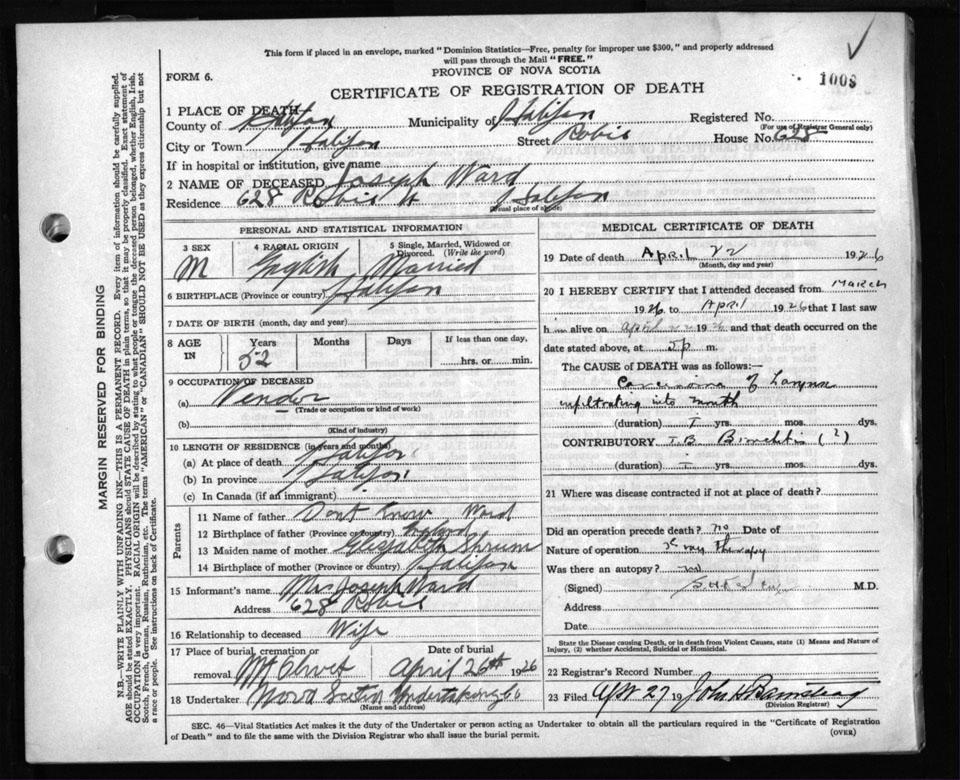 This form if placed in an envelope, marked "Dominion Statistics—Free, penalty for improper use $300," and properly addressed
will pass through the Mail "FREE."
PROVINCE OF NOVA SCOTIA
FORM 6.
1008
CERTIFICATE OF REGISTRATION OF DEATH
1 PLACE OF DEATH
County of Halifax Municipality of Halifax Registered No.
(For use of Registrar General only)
City or Town Halifax Street Robie House No. 628
If in hospital or institution, give name
2 NAME OF DECEASED Joseph Ward
Residence 628 Robie St Halifax
(Usual place of abode)
PERSONAL AND STATISTICAL INFORMATION
3 SEX 4 RACIAL ORIGIN 5 Single, Married, Widowed or
Divorced. (Write the word)
M English Married
6 BIRTHPLACE (Province or country) Halifax
7 DATE OF BIRTH (month, day and year)
8 AGE IN Years Months Days If less than one day,
52 hrs. or min.
9 OCCUPATION OF DECEASED
(a) Vendor
(Trade or occupation or kind of work)
(b)
(Kind of industry)
10 LENGTH OF RESIDENCE (in years and months)
(a) At place of death Halifax
(b) In province Halifax
(c) In Canada (if an immigrant)
Parents
11 Name of father Dont Know Ward
12 Birthplace of father (Province or country) England
13 Maiden name of mother Elizabeth Shrum
14 Birthplace of mother (Province or country) Halifax
15 Informant's name Mrs Joseph Ward
Address 628 Robie
16 Relationship to deceased Wife
17 Place of burial, cremation or Date of burial
removal Mt Olivet April 26th 1926
18 Undertaker Nova Scotia Undertaking Co
(Name and address)
MEDICAL CERTIFICATE OF DEATH
19 Date of death April 22 1926
(Month, day and year)
20 I HEREBY CERTIFY that I attended deceased from March
1926 to April 1926 that I last saw
him alive on April 22 1926 and that death occurred on the
date stated above, at 5 p m.
The CAUSE of DEATH was as follows:—
Carcinoma of Larynx
infiltrating into mouth
(duration) 1 yrs. mos. dys.
CONTRIBUTORY T.B. Bronchitis (?)
(duration) 1 yrs. mos. dys.
21 Where was disease contracted if not at place of death?
Did an operation precede death? no Date of
Nature of operation X ray therapy
Was there an autopsy? no
(Signed) M.D.
Address
Date
State the Disease causing Death, or in death from Violent Causes, state (1) Means and Nature of
Injury, (2) whether Accidental, Suicidal or Homicidal.
22 Registrar's Record Number
23 Filed Apr 27 19 John H Barnstead
(Division Registrar)
SEC. 46—Vital Statistics Act makes it the duty of the Undertaker or person acting as Undertaker to obtain all the particulars required in the "Certificate of Registration
of Death" and to file the same with the Division Registrar who shall issue the burial permit. (OVER)
MARGIN RESERVED FOR BINDING
N.B.—WRITE PLAINLY WITH UNFADING INK—THIS IS A PERMANENT RECORD. Every item of information should be carefully supplied.
AGE should be stated EXACTLY. PHYSICIANS should STATE CAUSE OF DEATH in plain terms, so that it may be properly classified. Exact statement of
OCCUPATION is very important. RACIAL ORIGIN will be described by stating to what people or tongue the deceased person belonged, whether English, Irish,
Scotch, French, German, Russian, Ruthenian, etc. The terms "AMERICAN" or "CANADIAN" SHOULD NOT BE USED as they express citizenship but not
a race or people. See instructions on back of Certificate.